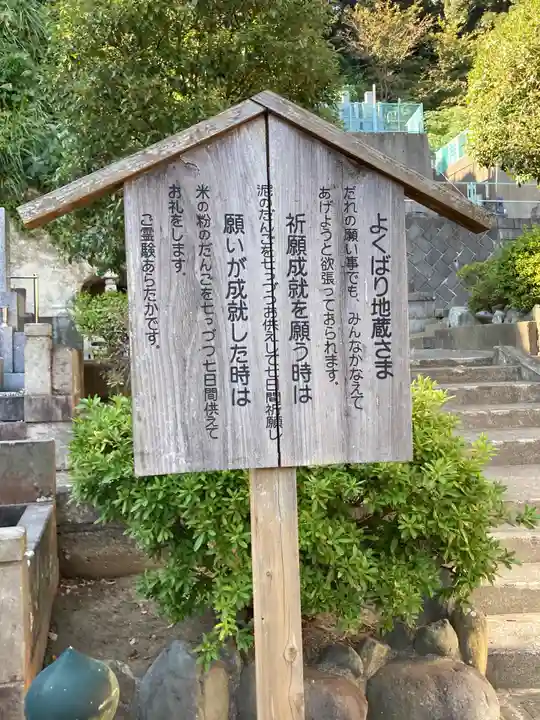 よくばり地蔵さま
だれの願い事でも、みんなかなえて
あげようと欲張っておられます。
祈願成就を願う時は
泥のだんごを七つづつお供えして七日間祈願し
願いが成就した時は
米の粉のだんごを七つづつ七日間供えて
お礼をします。
ご霊験あらたかです。